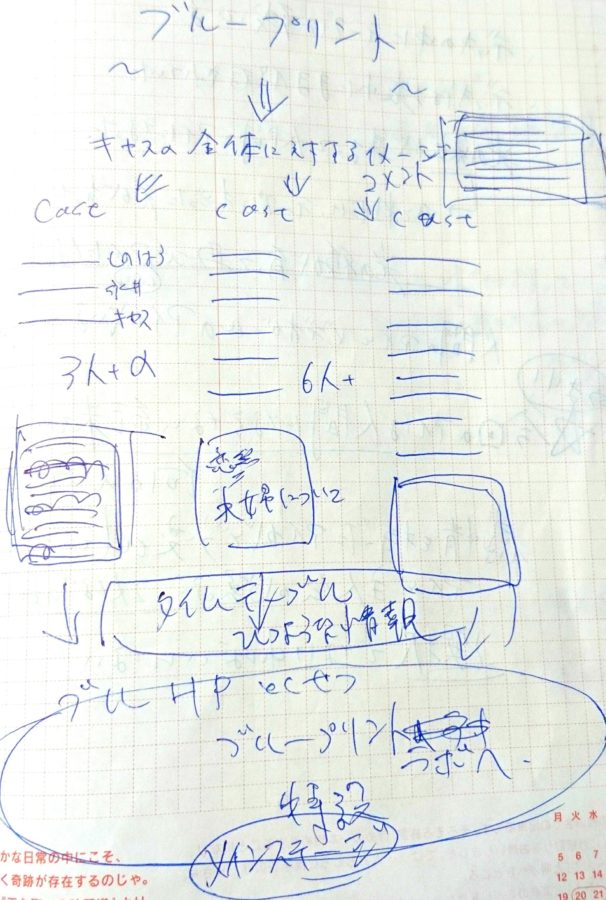 ブループリント
キャスの全体に対するイメージ
コメント
cast cast cast
しのはら
永井
キャス
3人+α 6人+
恋愛
夫婦について
タイムテーブル
ひつような情報
ブルーHP
ブループリント
ラボへ
特設
メインステージ
かな日常の中にこそ、
く奇跡が存在するのじゃ。
月 火 水
5 6 7
12 13 14
19 20 21